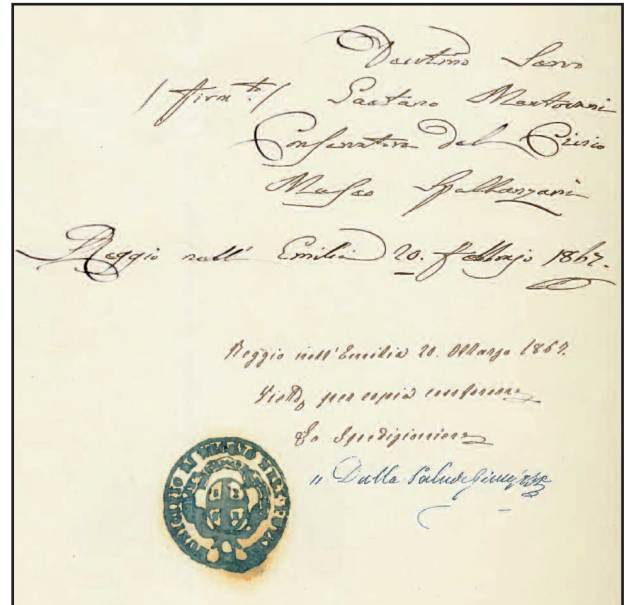 Devotmo Servo
/ firmto: / Gaetano Mantovani
Conservatore del Civico
Museo Spallanzani
Reggio nell' Emilia 20. febbrajo 1867.
Reggio nell'Emilia 20. Marzo 1867.
Visto per copia conforme
Lo Speditioniere
" Dalla Palude Giuseppe